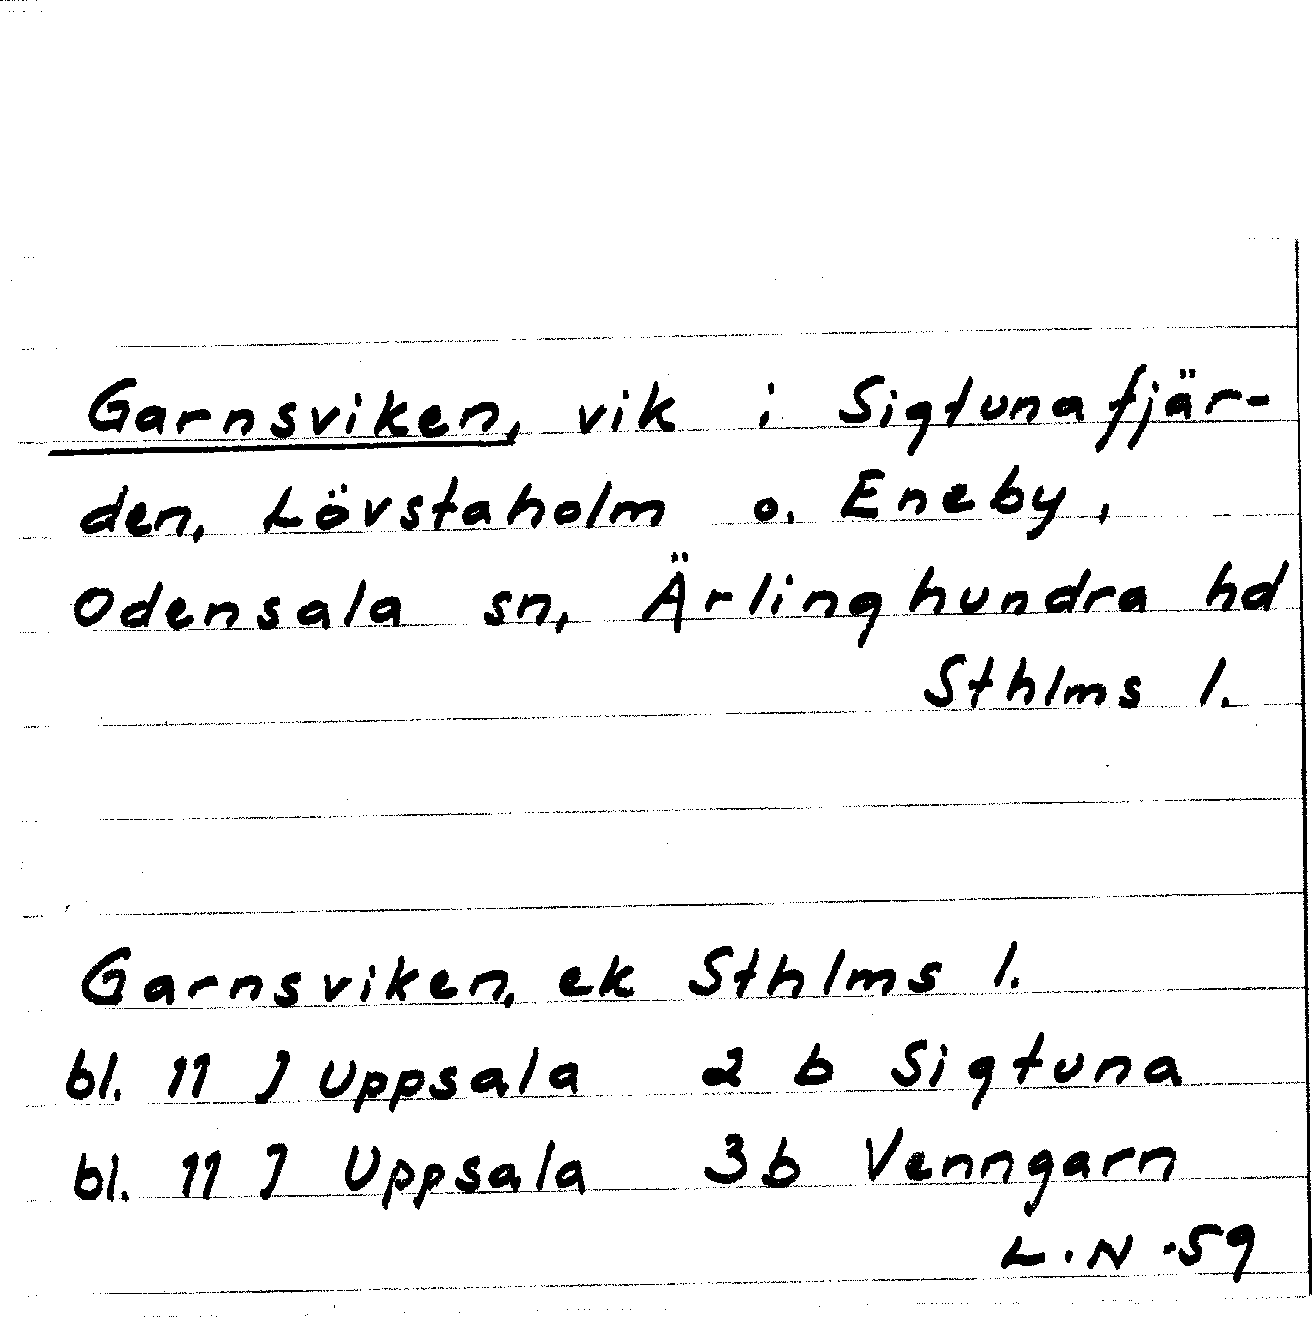 Garnsviken, vik i Sigtunafjär-
den, Lövstaholm o. Eneby,
Odensala sn, Ärlinghundra hd
Sthlms l.
Garnsviken, ek Sthlms l.
bl. 11 J Uppsala 2 b Sigtuna
bl. 11 J Uppsala 3b Venngarn
L.N.59